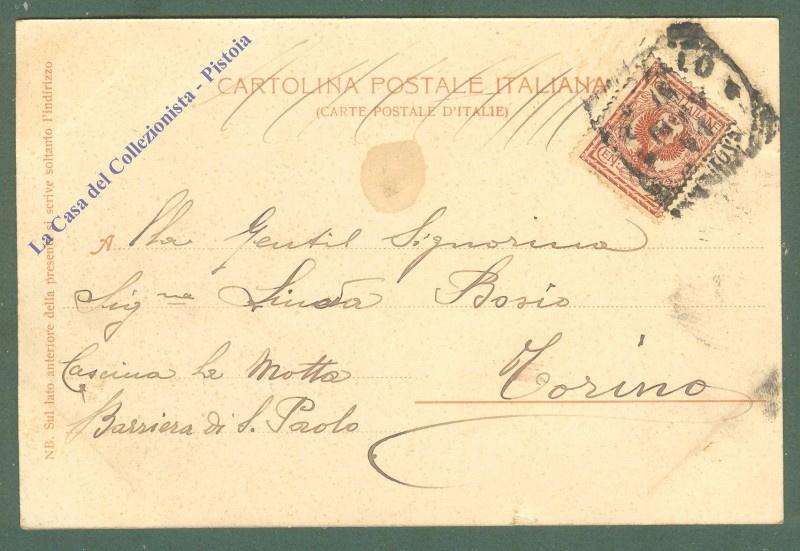 CARTOLINA POSTALE ITALIANA
(CARTE POSTALE D'ITALIE)
La Casa del Collezionista - Pistoia
NB. Sul lato anteriore della presente si scrive soltanto l'indirizzo
A lla Gentil Signorina
Sig.na Linda Bosio
Cascina La Motta
Torino
Barriera di S. Paolo